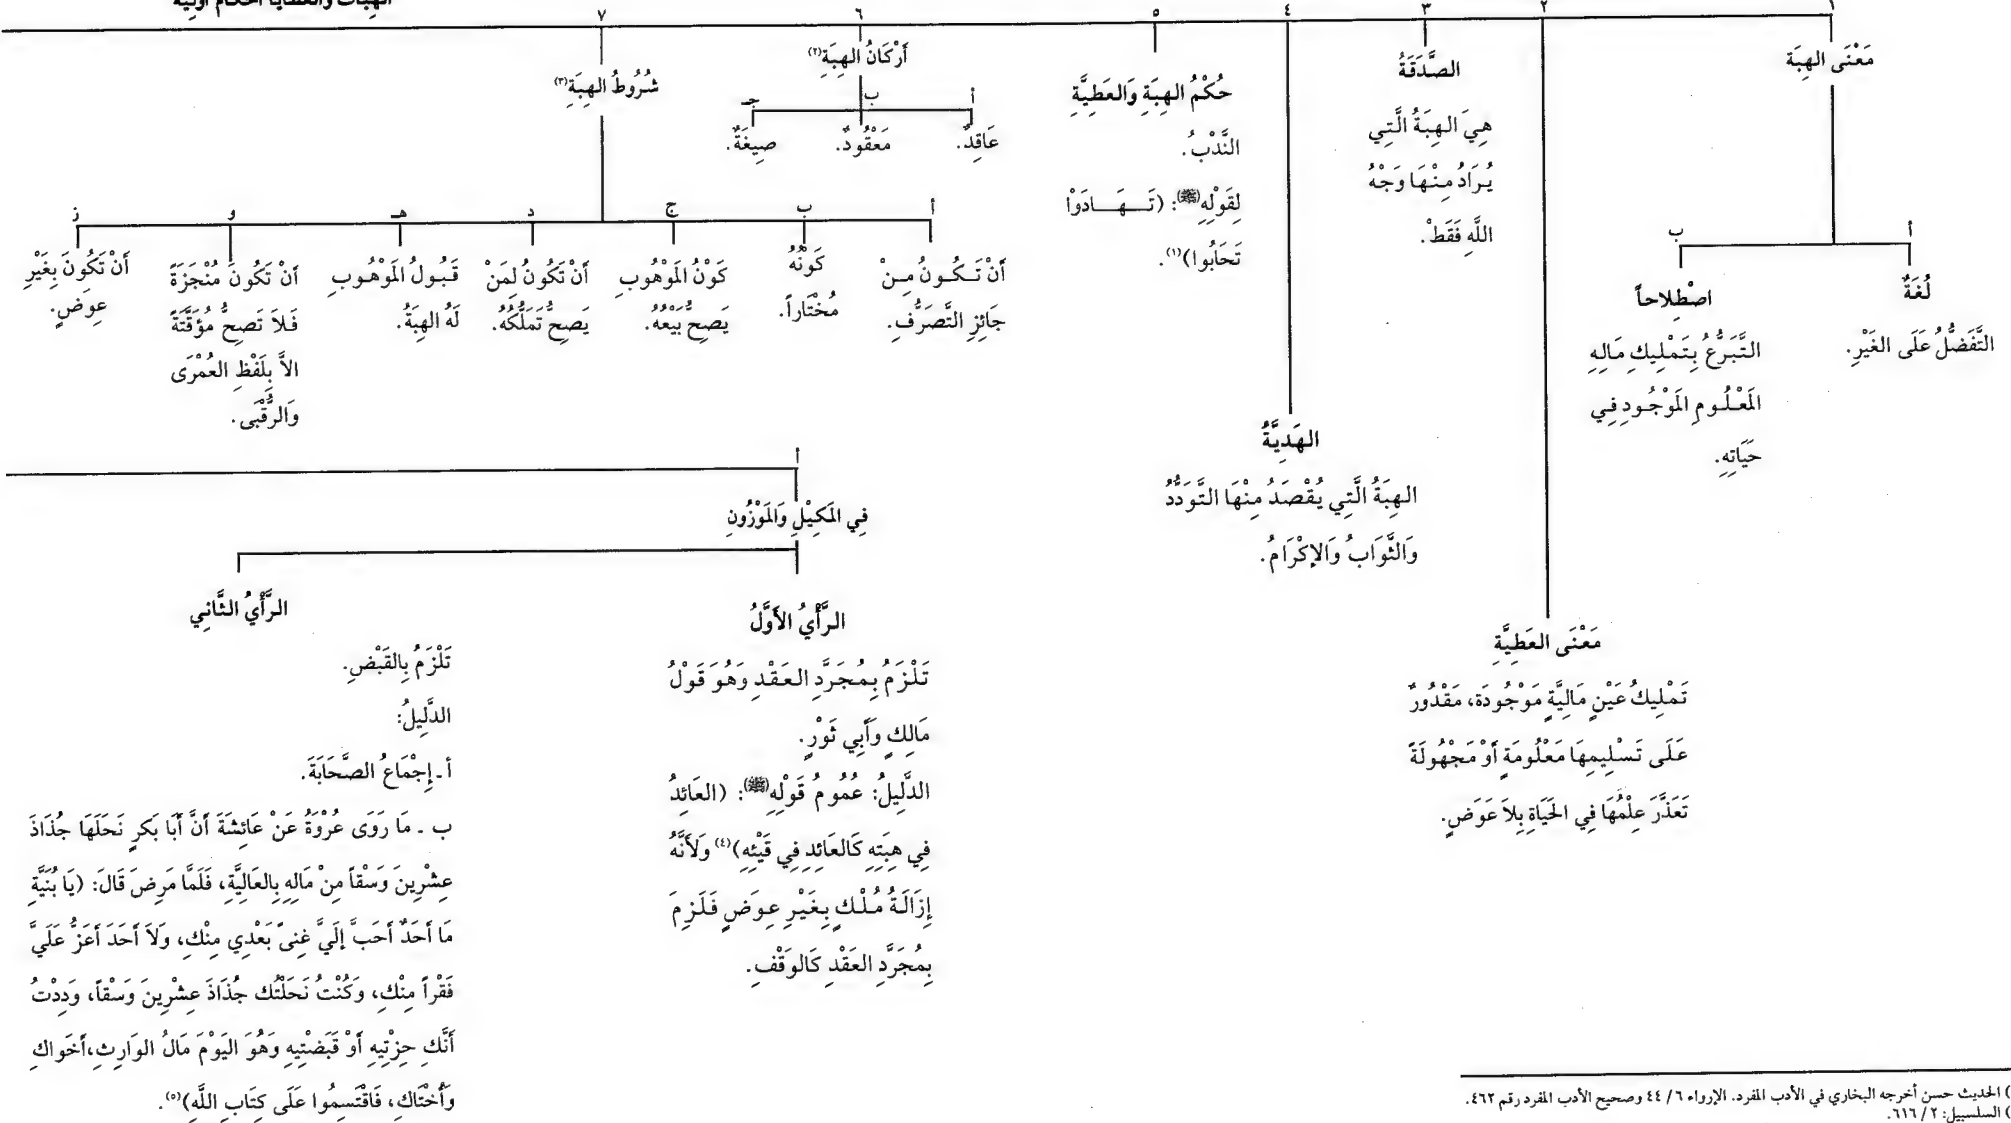 الهبات والعطايا أحكام أولية
١
٢
٣
٤
٥
٦
٧
مَعْنَى الهِبَة
أ
ب
لُغَةً
التَّفَضُّلُ عَلَى الغَيْرِ.
اصْطِلاحاً
التَّبَرُّعُ بِتَمْلِيكِ مَالِهِ
المَعْلُومِ المَوْجُودِ فِي
حَيَاتِهِ.
مَعْنَى العَطِيَّةِ
تَمْلِيكُ عَيْنٍ مَالِيَّةٍ مَوْجُودَة، مَقْدُورٌ
عَلَى تَسْلِيمِهَا مَعْلُومَةٍ أَوْ مَجْهُولَةً
تَعَذَّرَ عِلْمُهَا فِي الحَيَاةِ بِلاَ عَوَضٍ.
الصَّدَقَةُ
هِيَ الهِبَةُ الَّتِي
يُرَادُ مِنْهَا وَجْهُ
اللَّهِ فَقَطْ.
الهَدِيَّةُ
الهِبَةُ الَّتِي يُقْصَدُ مِنْهَا التَّوَدُّدُ
وَالثَّوَابُ وَالإكْرَامُ.
حُكْمُ الهِبَةِ وَالعَطِيَّةِ
النَّدْبُ.
لِقَوْلِهِ(ﷺ): (تَـهَـادَوْا
تَحَابُوا)(١).
أَرْكَانُ الهِبَةِ(٢)
أ
ب
جـ
عَاقِدٌ.
مَعْقُودٌ.
صِيغَةٌ.
شُرُوطُ الهِبَةِ(٣)
أ
ب
ج
د
هـ
و
ز
أَنْ تَـكُـونُ مِـنْ
جَائِزِ التَّصَرُّفِ.
كَوْنُهُ
مُخْتَاراً.
كَوْنُ المَوْهُوبِ
يَصِحُّ بَيْعُهُ.
أَنْ تَكُونُ لِمَنْ
يَصِحُّ تَمَلُّكُهُ.
قَبُولُ المَوْهُوبِ
لَهُ الهِبَةُ.
أَنْ تَكُونَ مُنْجَزَةً
فَلاَ تَصِحُّ مُؤَقَّتَةً
الاَّ بِلَفْظِ العُمْرَى
وَالرُّقْبَى.
أَنْ تَكُونَ بِغَيْرِ
عِوضٍ.
أ
فِي المَكِيْلِ وَالمَوْزُونِ
الرَّأْيُ الأَوَّلُ
تَلْزَمُ بِمُجَرَّدِ العَقْدِ وَهُوَ قَوْلُ
مَالِكٍ وَأَبِي ثَوْرٍ.
الدَّلِيلُ: عُمُومُ قَوْلِهِ(ﷺ): (العَائِدُ
فِي هِبَتِهِ كَالعَائِدِ فِي قَيْئِهِ)(٤) وَلأَنَّهُ
إِزَالَةُ مُلْكٍ بِغَيْرِ عِوَضٍ فَلَزِمَ
بِمُجَرَّدِ العَقْدِ كَالوَقْفِ.
الرَّأْيُ الثَّانِي
تَلْزَمُ بِالقَبْضِ.
الدَّلِيلُ:
أ ـ إِجْمَاعُ الصَّحَابَةَ.
ب ـ مَا رَوَى عُرْوَةُ عَنْ عَائِشَةَ أَنَّ أَبَا بَكرٍ نَحَلَهَا جُذَاذَ
عِشْرِينَ وَسْقاً مِنْ مَالِهِ بِالعَالِيَّةِ، فَلَمَّا مَرِضَ قَالَ: (يَا بُنَيَّةِ
مَا أَحَدٌ أَحَبَّ إلَيَّ غِنىً بَعْدِي مِنْكِ، وَلاَ أَحَدَ أَعَزُّ عَلَيَّ
فَقْراً مِنْكِ، وَكُنْتُ نَحَلْتُك جُذَاذَ عِشْرِينَ وَسْقاً، وَدِدْتُ
أَنَّكِ حِزْتِيهِ أَوْ قَبَضْتِيهِ وَهُوَ اليَوْمَ مَالُ الوَارِثِ،أَخَواكِ
وَأُخْتَاكِ، فَاقْتَسِمُوا عَلَى كِتَابِ اللَّهِ)(٥).
) الحديث حسن أخرجه البخاري في الأدب المفرد. الإرواء ٦/ ٤٤ وصحيح الأدب المفرد رقم ٤٦٢.
) السلسبيل: ٢/ ٦١٦.